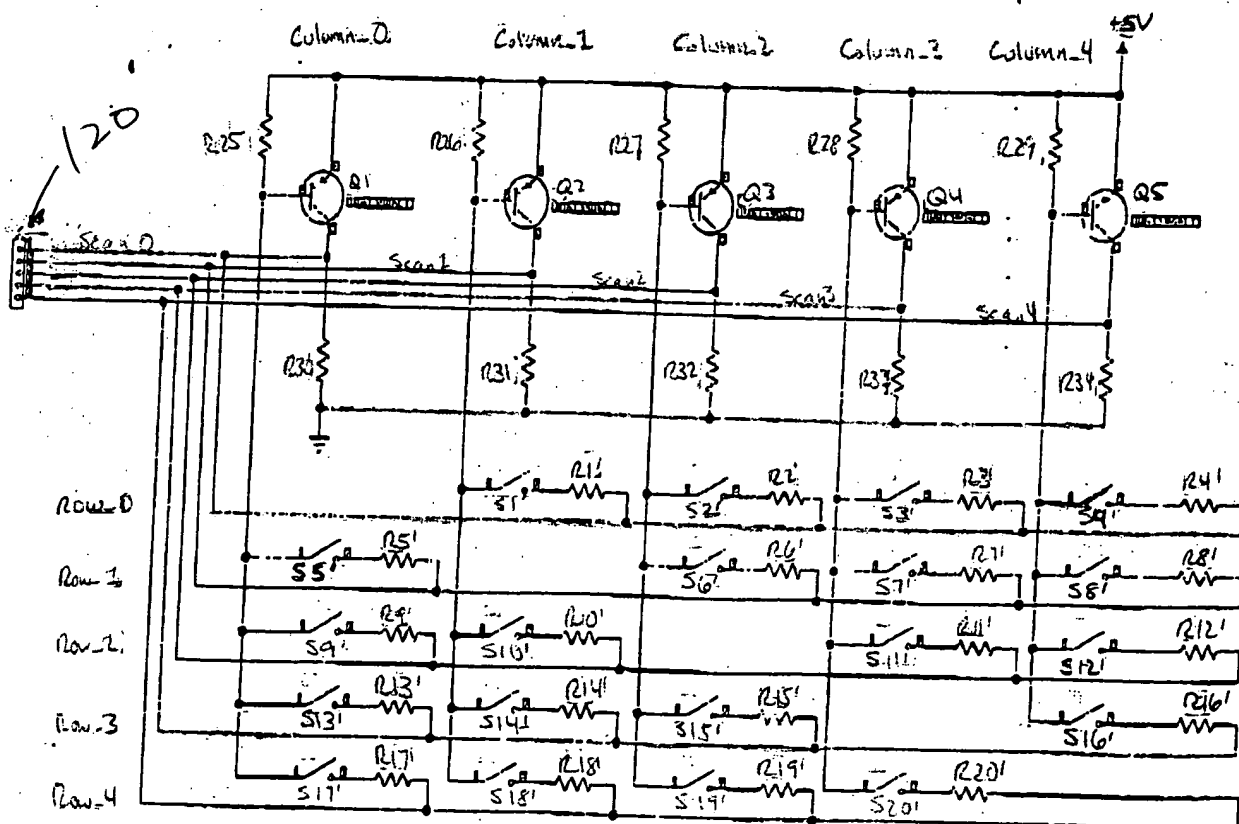 Column_0 Column_1 Column_2 Column_3 Column_4 +5V
120
R25 R26 R27 R28 R29
Q1 Q2 Q3 Q4 Q5
Scan 0
Scan1
Scan2
Scan3
Scan4
R30 R31 R32 R33 R34
Row_0 S1' R1' S2' R2' S3' R3' S4' R4'
Row_1 S5' R5' S6' R6' S7' R7' S8' R8'
Row_2 S9' R9' S10' R10' S11' R11' S12' R12'
Row_3 S13' R13' S14' R14' S15' R15' S16' R16'
Row_4 S17' R17' S18' R18' S19' R19' S20' R20'